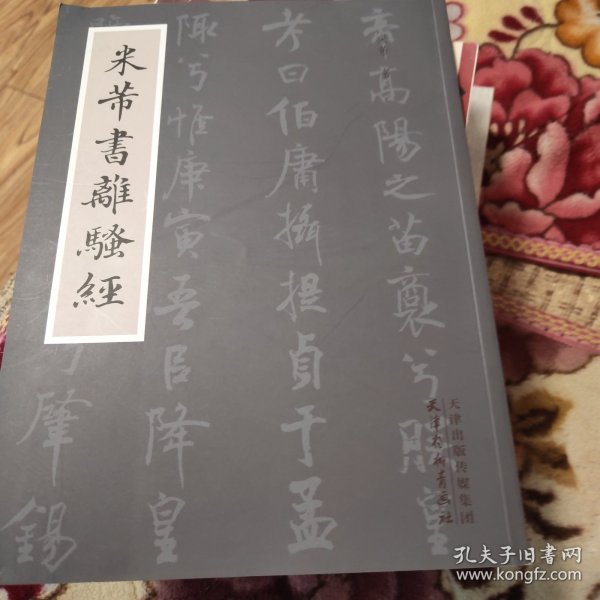 米芾書離騷經
帝高陽之苗裔兮朕皇
考曰伯庸攝提貞于孟
陬兮惟庚寅吾以降皇
肇錫
天津出版传媒集团
天津杨柳青画社
孔夫子旧书网
www.kongfz.com